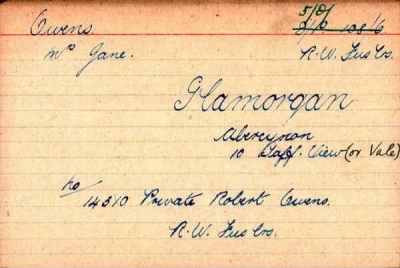 Owens. 5/Bf
108/6
Mrs Jane. R.W. Fusrs.
Glamorgan
Abercynon
10 Taff. View (or Vale)
No/
14310 Private Robert Owens.
R.W. Fusrs.